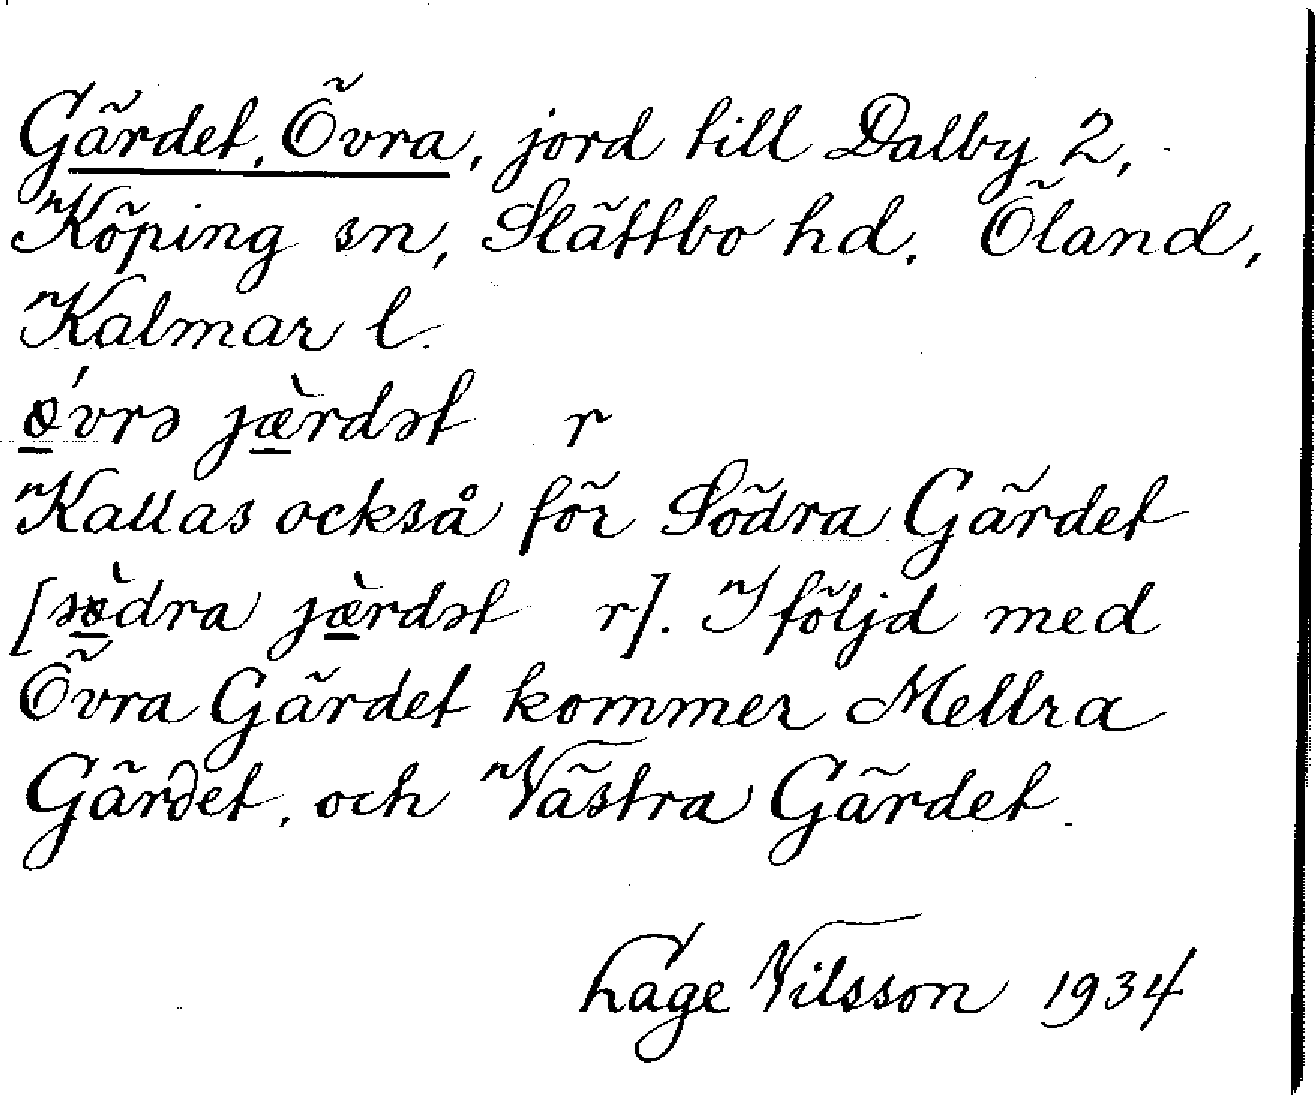 Gärdet, Övra, jord till Dalby 2,
Köping sn, Slättbo hd. Öland,
Kalmar l.
ǿvrə jæ̀rdət r
Kallas också för Södra Gärdet
[sø̀dra jæ̀rdət r]. I följd med
Övra Gärdet kommer Mellra
Gärdet, och Västra Gärdet.
Lage Nilsson 1934